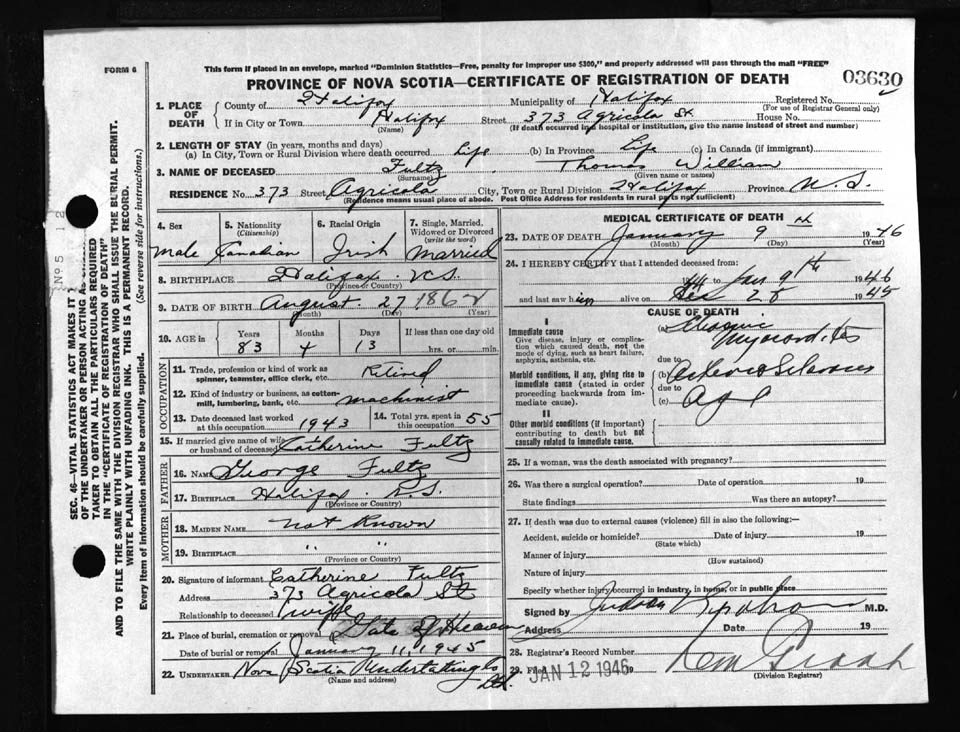 FORM 6
This form if placed in an envelope, marked "Dominion Statistics—Free, penalty for improper use $300," and properly addressed will pass through the mail "FREE"
PROVINCE OF NOVA SCOTIA—CERTIFICATE OF REGISTRATION OF DEATH
03630
1. PLACE OF DEATH County of Halifax Municipality of Halifax Registered No. (For use of Registrar General only)
If in City or Town Halifax (Name) Street 373 Agricola St House No.
(If death occurred in a hospital or institution, give the name instead of street and number)
2. LENGTH OF STAY (in years, months and days)
(a) In City, Town or Rural Division where death occurred Life (b) In Province Life (c) In Canada (if immigrant)
3. NAME OF DECEASED Fultz (Surname) Thomas William (Given name or names)
RESIDENCE No. 373 Street Agricola City, Town or Rural Division Halifax Province N.S.
(Residence means usual place of abode. Post Office Address for residents in rural parts not sufficient)
4. Sex 5. Nationality (Citizenship) 6. Racial Origin 7. Single, Married, Widowed or Divorced (write the word)
Male Canadian Irish Married
8. BIRTHPLACE Halifax N.S.
(Province or Country)
9. DATE OF BIRTH August 27 1862
(Month) (Day) (Year)
10. AGE in Years Months Days If less than one day old
83 4 13 hrs. or min.
OCCUPATION
11. Trade, profession or kind of work as spinner, teamster, office clerk, etc. Retired
12. Kind of industry or business, as cotton-mill, lumbering, bank, etc. machinist
13. Date deceased last worked at this occupation 1943 14. Total yrs. spent in this occupation 55
15. If married give name of wife or husband of deceased Catherine Fultz
FATHER
16. NAME George Fultz
17. BIRTHPLACE Halifax N.S.
(Province or Country)
MOTHER
18. MAIDEN NAME Not Known
19. BIRTHPLACE " "
(Province or Country)
20. Signature of informant Catherine Fultz
Address 373 Agricola St
Relationship to deceased wife
21. Place of burial, cremation or removal Gate of Heaven
Date of burial or removal January 11, 1945
22. UNDERTAKER Nova Scotia Undertaking Co Ltd.
(Name and address)
MEDICAL CERTIFICATE OF DEATH
23. DATE OF DEATH January 9th 1946
(Month) (Day) (Year)
24. I HEREBY CERTIFY that I attended deceased from:
to Jan 9th 1946
and last saw him alive on Dec 28 1945
CAUSE OF DEATH
I
Immediate cause
Give disease, injury or complication which caused death, not the mode of dying, such as heart failure, asphyxia, asthenia, etc.
(a) Chronic Myocarditis
due to
Morbid conditions, if any, giving rise to immediate cause (stated in order proceeding backwards from immediate cause).
(b) Arteriosclerosis
due to
(c) Age
II
Other morbid conditions (if important) contributing to death but not causally related to immediate cause.
25. If a woman, was the death associated with pregnancy?
26. Was there a surgical operation? Date of operation 19
State findings Was there an autopsy?
27. If death was due to external causes (violence) fill in also the following:—
Accident, suicide or homicide? Date of injury 19
(State which)
Manner of injury
(How sustained)
Nature of injury
Specify whether injury occurred in industry, in home, or in public place
Signed by Judson M.D.
Address Date 19
28. Registrar's Record Number
29. Filed JAN 12 1946 19
(Division Registrar)
SEC. 46—VITAL STATISTICS ACT MAKES IT
OF THE UNDERTAKER OR PERSON ACTING AS
TAKER TO OBTAIN ALL THE PARTICULARS REQUIRED
IN THE "CERTIFICATE OF REGISTRATION OF DEATH"
AND TO FILE THE SAME WITH THE DIVISION REGISTRAR WHO SHALL ISSUE THE BURIAL PERMIT.
WRITE PLAINLY WITH UNFADING INK. THIS IS A PERMANENT RECORD.
Every item of information should be carefully supplied. (See reverse side for instructions.)